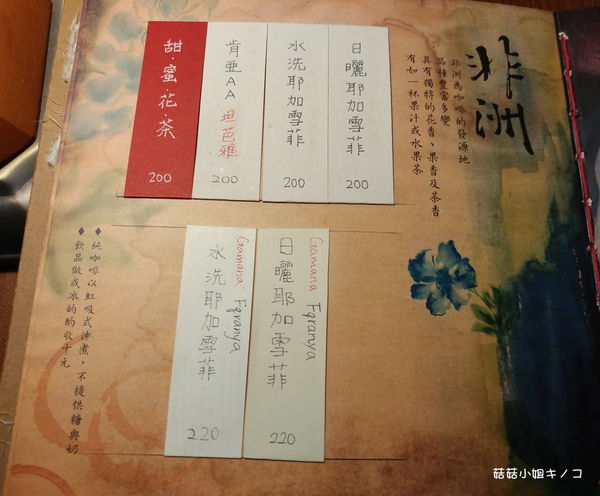 非洲
非洲為咖啡的發源地
品種豐富多變
具有獨特的花香、果香及茶香
有如一杯果汁或水果茶
日曬耶加雪菲
200
水洗耶加雪菲
200
肯亞AA 坦芭雅
200
甜·蜜·花·茶
200
Gamana Fqranya
日曬耶加雪菲
220
Gamana Fqranya
水洗耶加雪菲
220
◆純咖啡以虹吸式沖煮,不提供糖與奶
◆飲品做成冰的酌收十元
菇菇小姐キノコ